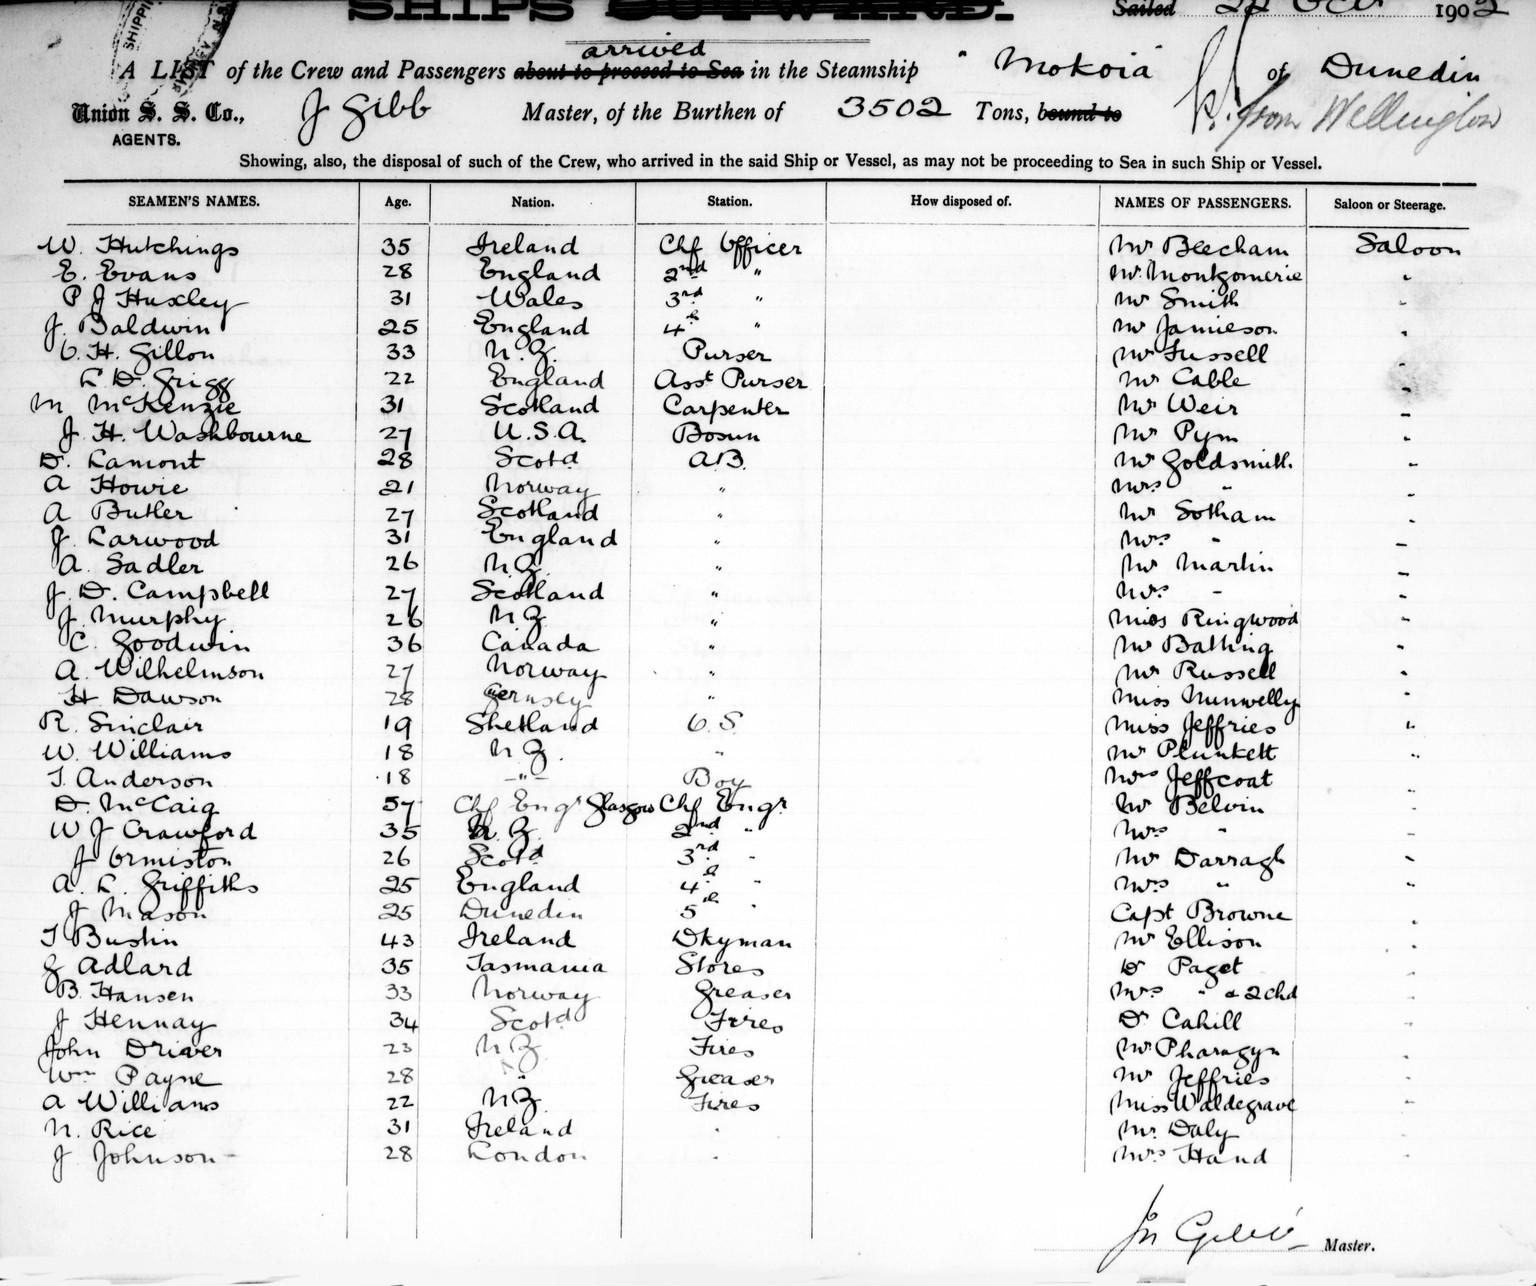 SHIPS OUTWARD.
Sailed 22 Oct 1902
arrived
A LIST of the Crew and Passengers about to proceed to Sea in the Steamship "Mokoia" of Dunedin
Union S. S. Co., J Gibb Master, of the Burthen of 3502 Tons, bound to from Wellington
AGENTS.
Showing, also, the disposal of such of the Crew, who arrived in the said Ship or Vessel, as may not be proceeding to Sea in such Ship or Vessel.
SEAMEN'S NAMES. Age. Nation. Station. How disposed of. NAMES OF PASSENGERS. Saloon or Steerage.
W. Hutchings 35 Ireland Chf Officer Mr Beecham Saloon
E. Evans 28 England 2nd " Mr Montgomerie "
P J Huxley 31 Wales 3rd " Mr Smith "
J. Baldwin 25 England 4th " Mr Jamieson "
O. H. Gillon 33 N.Z. Purser Mr Fussell "
L D. Grigg 22 England Asst Purser Mr Cable "
M McKenzie 31 Scotland Carpenter Mr Weir "
J. H. Washbourne 27 U.S.A. Bosun Mr Pym "
D. Lamont 28 Scotd A.B. Mr Goldsmith "
A Howie 21 Norway " Mrs " "
A Butler 27 Scotland " Mr Sotham "
J. Larwood 31 England " Mrs " "
A. Sadler 26 N.Z. " Mr Martin "
J. D. Campbell 27 Scotland " Mrs " "
J. Murphy 26 N.Z. " Miss Ringwood "
C. Goodwin 36 Canada " Mr Batting "
A. Wilhelmson 27 Norway " Mr Russell "
H Dawson 28 Gernsey " Miss Nunwelly "
R. Sinclair 19 Shetland O.S. Miss Jeffries "
W. Williams 18 N.Z. " Mr Plunkett "
T. Anderson 18 " Boy Mrs Jeffcoat "
D. McCaig 57 Chf Engr Glasgow Chf Engr Mr Belvin "
W J Crawford 35 N.Z. 2nd " Mrs " "
J Ormiston 26 Scotd 3rd " Mr Darragh "
A. L. Griffiths 25 England 4th " Mrs " "
J Mason 25 Dunedin 5th " Capt Browne "
T Bustin 43 Ireland Dkyman Mr Ellison "
G Adlard 35 Tasmania Stores Dr Paget "
B. Hansen 33 Norway Greaser Mrs " & 2 chd "
J Hennay 34 Scotd Fires Dr Cahill "
John Driver 23 N.Z. Fires Mr Pharazyn "
Wm Payne 28 " Greaser Mr Jeffries "
A Williams 22 N.Z. Fires Miss Waldegrave "
N. Rice 31 Ireland " Mr. Daly "
J Johnson 28 London " Mrs Hand "
Jn Gibb Master.